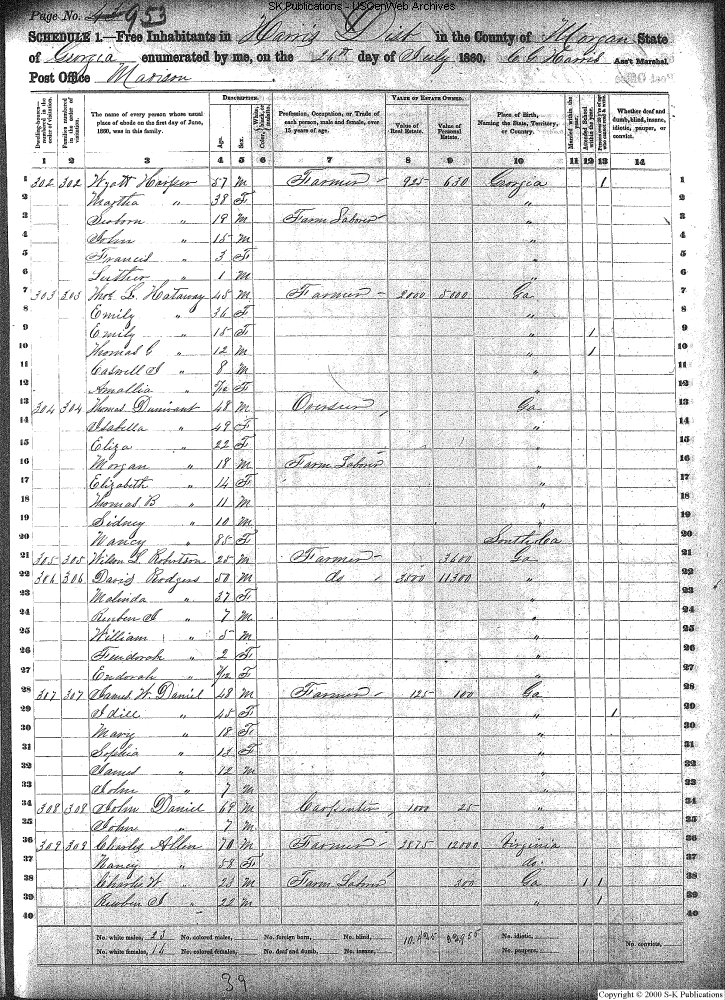 SK Publications - USGenWeb Archives
Page No. 953
SCHEDULE 1.—Free Inhabitants in Harris Dist in the County of Morgan State
of Georgia enumerated by me, on the 26th day of July 1860. C C Harris Ass't Marshal.
Post Office Madison
Dwelling-houses—numbered in the order of visitation. Families numbered in the order of visitation. The name of every person whose usual place of abode on the first day of June, 1860, was in this family. DESCRIPTION. Age. Sex. Color, White, black, or mulatto. Profession, Occupation, or Trade of each person, male and female, over 15 years of age. VALUE OF ESTATE OWNED. Value of Real Estate. Value of Personal Estate. Place of Birth, Naming the State, Territory, or Country. Married within the year. Attended School within the year. Whether deaf and dumb, blind, insane, idiotic, pauper, or convict.
1 2 3 4 5 6 7 8 9 10 11 12 13 14
1 302 302 Wyatt Harper 57 M Farmer 925 630 Georgia 1 1
2 Martha " 38 F " 2
3 Seaborn " 19 M Farm Laborer " 3
4 John " 15 M " 4
5 Francis " 3 F " 5
6 Luther " 1 M " 6
7 303 303 Thos L. Hataway 45 M Farmer 2000 5000 Ga 7
8 Emily " 36 F " 8
9 Emily " 15 F " 1 9
10 Thomas G " 12 M " 1 10
11 Caswell J " 8 M " 11
12 Amallia " /12 F " 12
13 304 304 Thomas Dunivant 48 M Overseer Ga 13
14 Isabella " 49 F " 14
15 Eliza " 22 F " 15
16 Morgan " 18 M Farm Laborer " 16
17 Elizabeth " 14 F " 17
18 Thomas B " 11 M " 18
19 Sidney " 10 M " 19
20 Nancy " 85 F South Ca 20
21 305 305 Wilson L. Robertson 25 M Farmer 3600 Ga 21
22 306 306 David Rodgers 50 M do 3500 11300 " 22
23 Malinda " 37 F " 23
24 Reuben J " 7 M " 24
25 William " 5 M " 25
26 Fendorah " 2 F " 26
27 Endorah " /12 F " 27
28 307 307 James W. Daniel 48 M Farmer 125 100 Ga 28
29 Idill " 45 F " 1 29
30 Mary " 18 F " 30
31 Sophia " 13 F " 31
32 James " 12 M " 32
33 John " 7 M " 33
34 308 308 John Daniel 69 M Carpenter 1000 25 " 34
35 John " 7 M " 35
36 309 309 Charles Allen 70 M Farmer 2875 12000 Virginia 36
37 Nancy " 58 F do 37
38 Charles W " 23 M Farm Laborer 300 Ga 1 1 38
39 Reuben J " 22 M " 1 39
40 40
No. white males, 23 No. colored males, No. foreign born, No. blind, No. idiotic,
No. white females, No. colored females, No. deaf and dumb, No. insane, No. paupers, No. convicts,
39
Copyright © 2000 S-K Publications